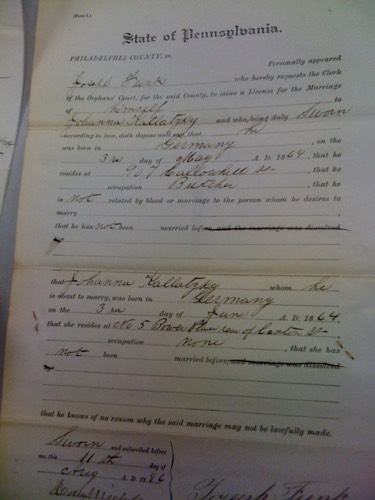 (Form 1.)
State of Pennsylvania.
PHILADELPHIA COUNTY, ss.
Personally appeared
Joseph Funk who hereby requests the Clerk
of the Orphans' Court, for the said County, to issue a License for the Marriage
of himself to
Johanna Kallatzky and who, being duly Sworn
according to law, doth depose and say, that he
was born in Germany, on the
3rd day of May A. D. 1864, that he
resides at 907 Callowhill St
occupation Butcher, that he
is not related by blood or marriage to the person whom he desires to
marry
that he has not been married before, and the marriage was dissolved
by
that Johanna Kallatzky whom he
is about to marry, was born in Germany
on the 3rd day of June A. D. 1864,
that she resides at No 5 rear of Canton St
occupation none, that she has
not been married before, and the marriage was dissolved
by
that he knows of no reason why the said marriage may not be lawfully made.
Sworn and subscribed before
me, this 11th day of
Aug A. D. 1886
Joseph Funk